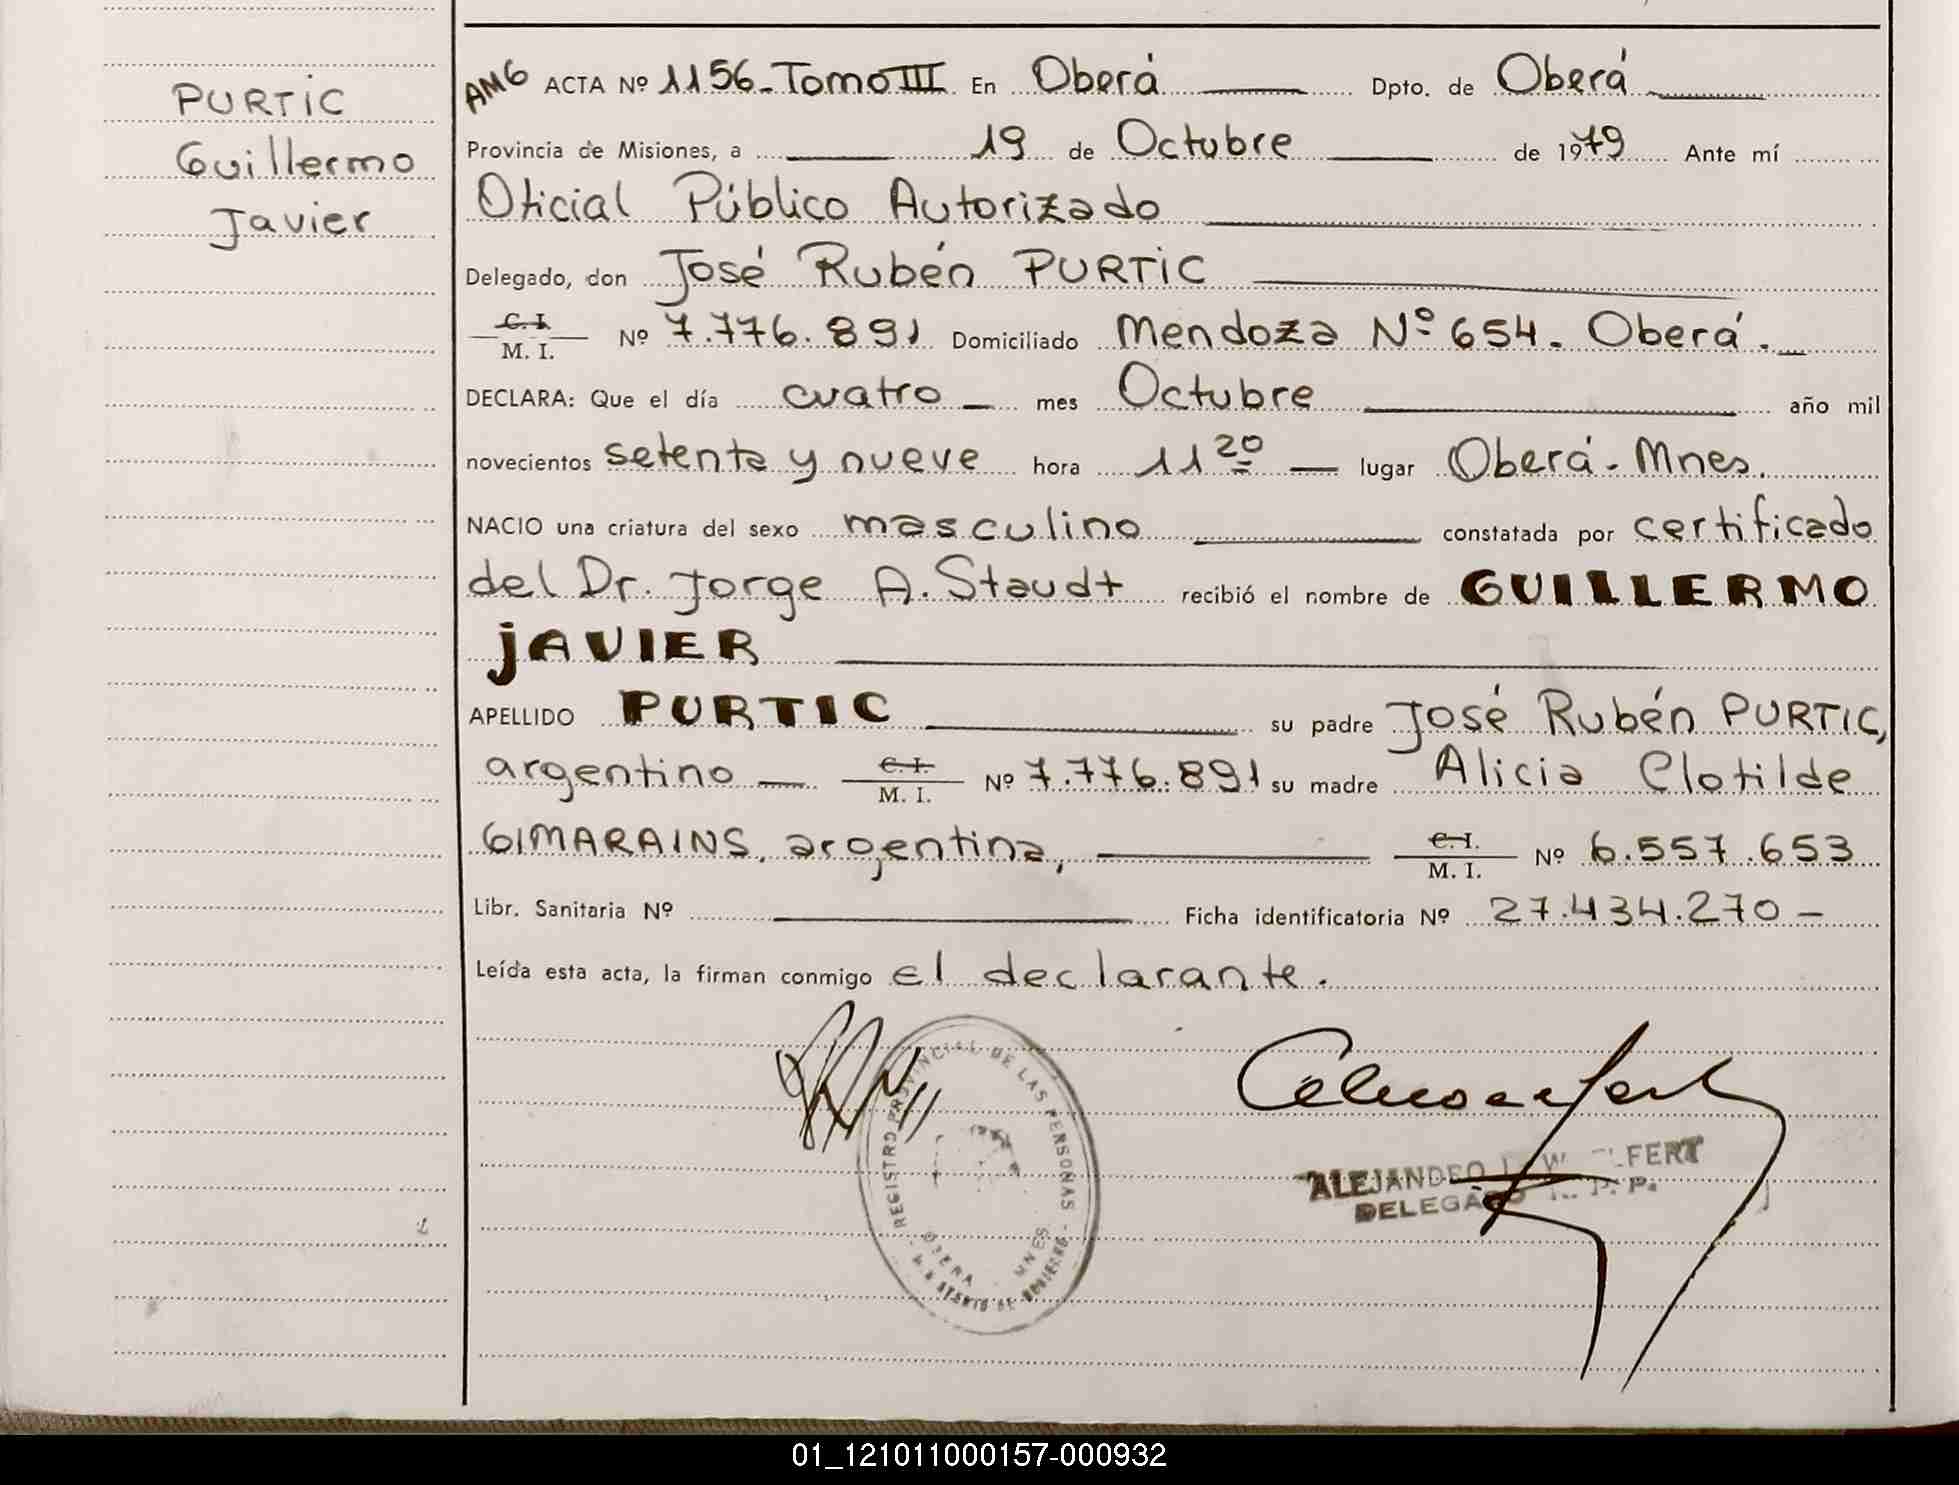 PURTIC
Guillermo
Javier
AMG ACTA Nº 1156 - Tomo III En Oberá Dpto. de Oberá
Provincia de Misiones, a 19 de Octubre de 1979 Ante mí
Oficial Público Autorizado
Delegado, don José Rubén PURTIC
C. I. / M. I. Nº 7.776.891 Domiciliado Mendoza Nº 654 - Oberá.
DECLARA: Que el día cuatro mes Octubre año mil
novecientos setenta y nueve hora 11 20 lugar Oberá - Mnes.
NACIO una criatura del sexo masculino constatada por certificado
del Dr. Jorge A. Staudt recibió el nombre de GUILLERMO
JAVIER
APELLIDO PURTIC su padre José Rubén PURTIC,
argentino C. I. / M. I. Nº 7.776.891 su madre Alicia Clotilde
GIMARAINS, argentina, C. I. / M. I. Nº 6.557.653
Libr. Sanitaria Nº Ficha identificatoria Nº 27.434.270 -
Leída esta acta, la firman conmigo el declarante.
REGISTRO PROVINCIAL DE LAS PERSONAS
OBERA MNES
ALEJANDRO
DELEGADO R. P. P.
01_121011000157-000932